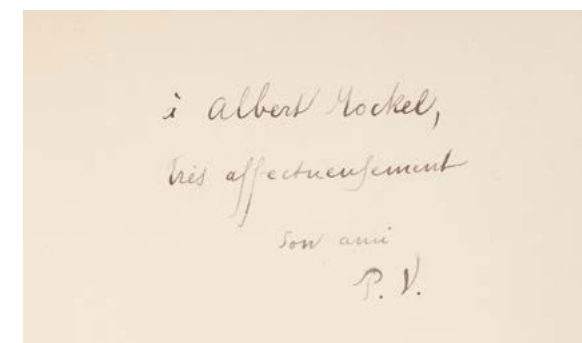 à Albert Mockel,
très affectueusement
son ami
P. V.